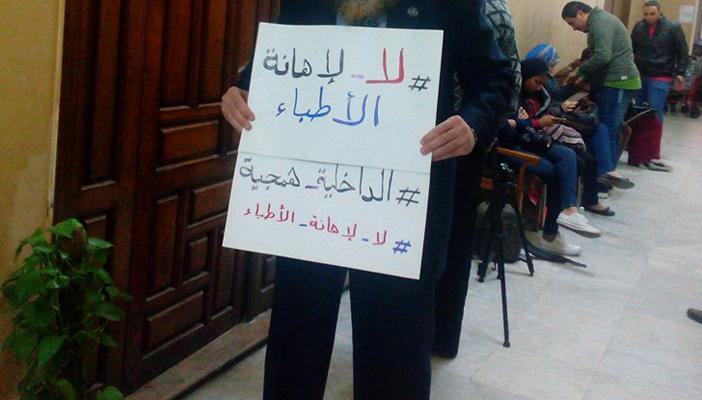 #لا_لإهانة
الأطباء
#الداخلية_همجية
#لا_لإهانة_الأطباء